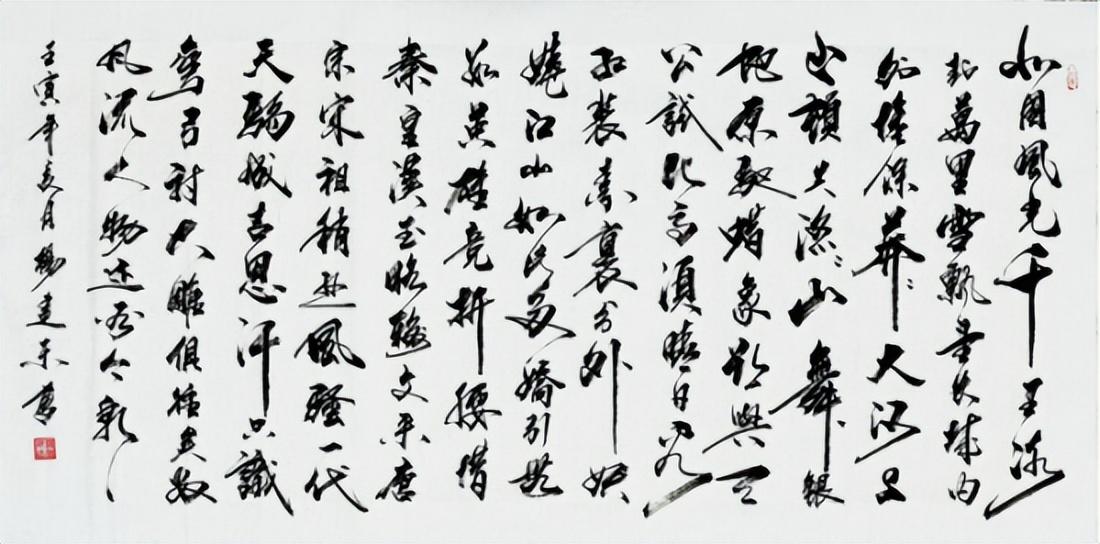 北國風光千里冰
封萬里雪飄望長城内
外惟餘莽〻大河上
下頓失滔〻山舞銀
蛇原馳蠟象欲與天
公試比高須晴日看
红裝素裹分外妖
嬈江山如此多嬌引無
數英雄竞折腰惜
秦皇漢武略輸文采唐
宗宋祖稍遜風騷一代
天驕成吉思汗只識
彎弓射大雕俱往矣數
風流人物还看今朝
壬寅年夏月楊建書